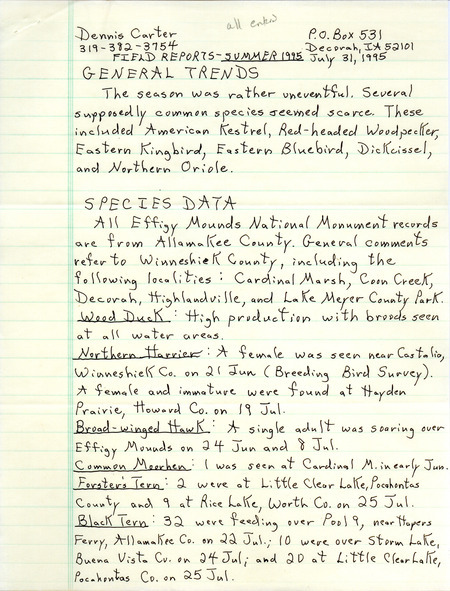 all entered
Dennis Carter P.O. Box 531
319-382-3754 Decorah, IA 52101
FIELD REPORTS-SUMMER 1995 July 31, 1995
GENERAL TRENDS
The season was rather uneventful. Several
supposedly common species seemed scarce. These
included American Kestrel, Red-headed Woodpecker,
Eastern Kingbird, Eastern Bluebird, Dickcissel,
and Northern Oriole.
SPECIES DATA
All Effigy Mounds National Monument records
are from Allamakee County. General comments
refer to Winneshiek County, including the
following localities: Cardinal Marsh, Coon Creek,
Decorah, Highlandville, and Lake Meyer County Park.
Wood Duck: High production with broods seen
at all water areas.
Northern Harrier: A female was seen near Castalia,
Winneshiek Co. on 21 Jun (Breeding Bird Survey).
A female and immature were found at Hayden
Prairie, Howard Co. on 19 Jul.
Broad-winged Hawk: A single adult was soaring over
Effigy Mounds on 24 Jun and 8 Jul.
Common Moorhen: 1 was seen at Cardinal M. in early Jun.
Forster's Tern: 2 were at Little Clear Lake, Pocahontas
County and 9 at Rice Lake, Worth Co. on 25 Jul.
Black Tern: 32 were feeding over Pool 9, near Harpers
Ferry, Allamakee Co. on 22 Jul.; 10 were over Storm Lake,
Buena Vista Co. on 24 Jul; and 20 at Little Clear Lake,
Pocahontas Co. on 25 Jul.